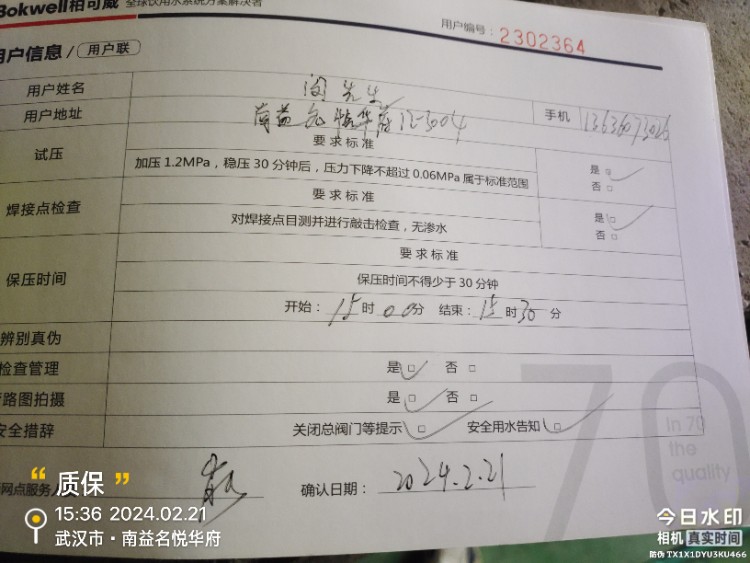 Bokwell柏可威 全球饮用水系统方案解决者
用户编号：2302364
用户信息/用户联
用户姓名 闵先生
用户地址 南益名悦华府12-3004 手机 13636073026
试压 要求标准
加压1.2MPa，稳压30分钟后，压力下降不超过0.06MPa属于标准范围 是 否
焊接点检查 要求标准
对焊接点目测并进行敲击检查，无渗水 是 否
保压时间 要求标准
保压时间不得少于30分钟
开始：15时00分 结束：15时30分
辨别真伪
检查管理 是 否
路图拍摄 是 否
安全措辞 关闭总阀门等提示 安全用水告知
网点服务人 确认日期：2024.2.21
70
In 70
the
quality
“质保”
15:36 2024.02.21
武汉市·南益名悦华府
今日水印
相机 真实时间
防伪 TX1X1DYU3KU466